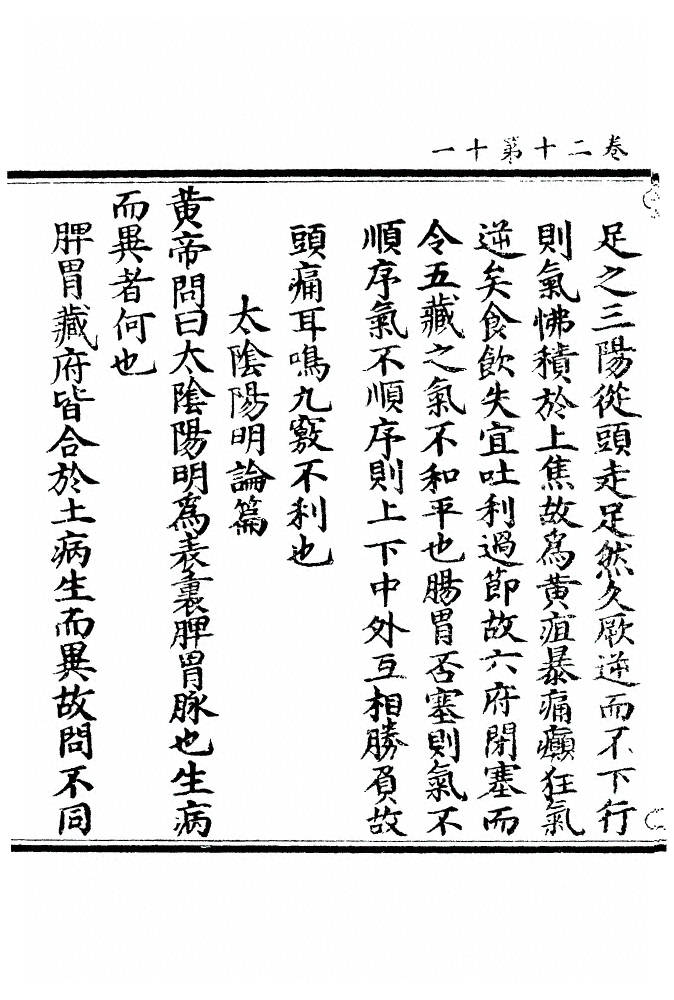 卷二十第十一
足之三陽從頭走足然久厥逆而不下行
則氣怫積於上焦故爲黄疸暴痛癲狂氣
逆矣食飲失宜吐利過節故六府閉塞而
令五藏之氣不和平也腸胃否塞則氣不
順序氣不順序則上下中外互相勝負故
頭痛耳鳴九竅不利也
太陰陽明論篇
黄帝問曰太陰陽明爲表裏脾胃脉也生病
而異者何也
脾胃藏府皆合於土病生而異故問不同